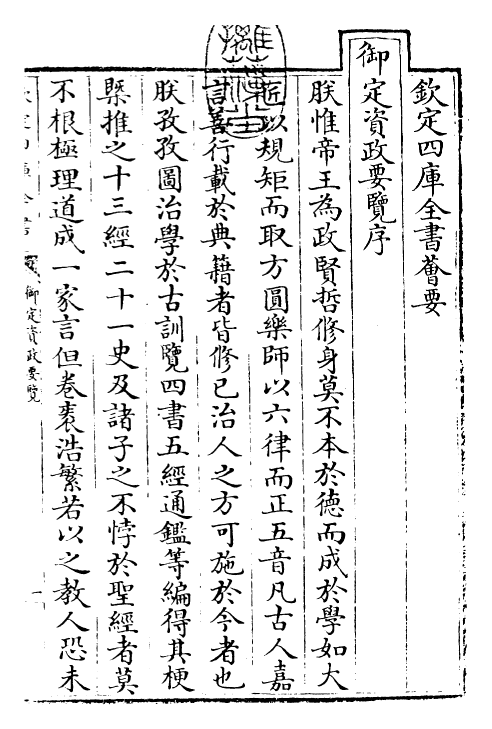 欽定四庫全書薈要
御定資政要覽序
朕惟帝王為政賢哲修身莫不本於德而成於學如大
匠以規矩而取方圓樂師以六律而正五音凡古人嘉
言善行載於典籍者皆修已治人之方可施於今者也
朕孜孜圖治學於古訓覽四書五經通鑑等編得其梗
槩推之十三經二十一史及諸子之不悖於聖經者莫
不根極理道成一家言但卷袠浩繁若以之教人恐未
御定資政要覽
一